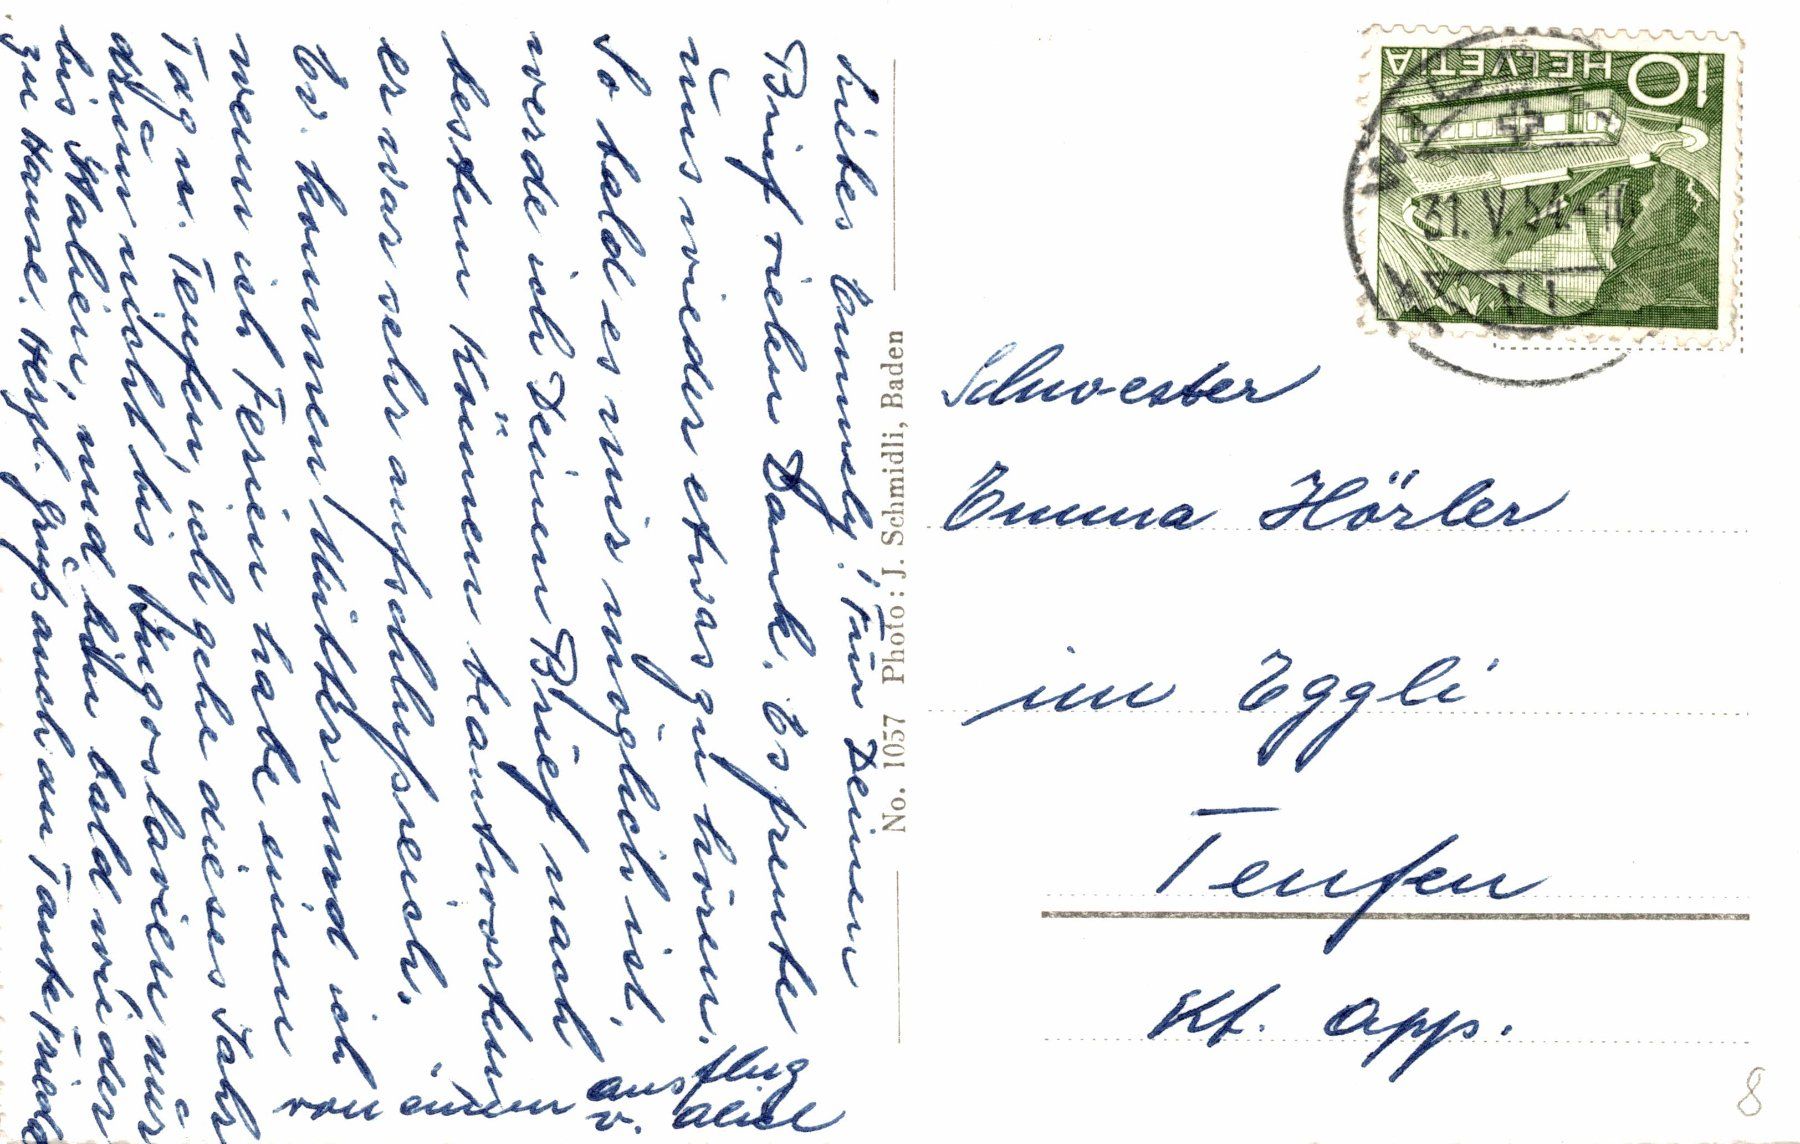 Liebes Emmely! Für Deinen
Brief vielen Dank. Es freute
uns wieder etwas zu hören.
So bald es mir möglich ist,
werde ich Deinen Brief nach
bestem Können beantworten
er war sehr aufschlußreich.
Ev. kommen Mutter und ich
wenn ich Ferien habe einen
Tag n. Teufen, ich gehe dieses Jahr
drum nicht bis Jugoslavien nur
bis Italien, und bin bald wieder
zu Hause. Herzl. Gruß auch an Tante Frieda
von einem Ausflug
v. Alice
No. 1057 Photo: J. Schmidli, Baden
HELVETIA 10
31.V.54-10
VI
Schwester
Emma Hörler
im Eggli
Teufen
Kt. App.
8